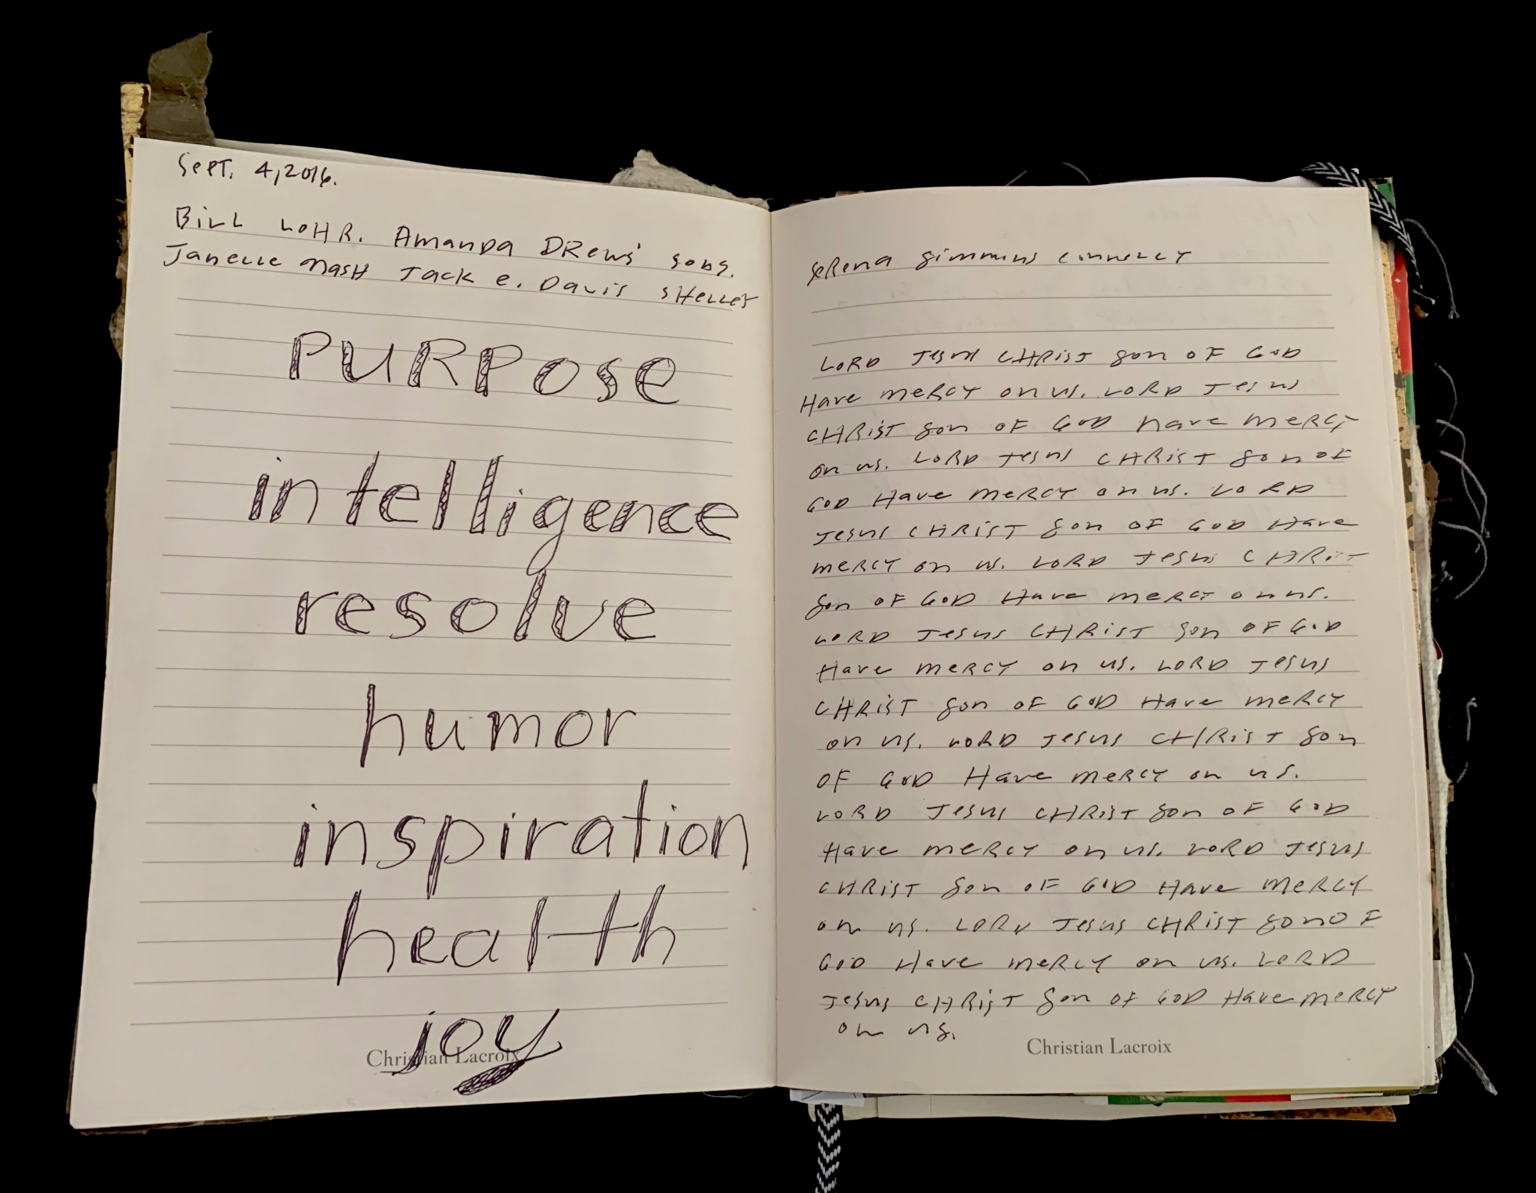 Sept. 4, 2016.
Bill Lohr. Amanda Drews sons.
Janelle Nash Jack e. Davis Shelley
PURPOSE
intelligence
resolve
humor
inspiration
health
joy
Christian Lacroix
Serena Simmins Connelly
LORD Jesus CHRIST Son OF GOD
Have meRCY on us. LORD Jesus
CHRIST Son OF GOD have meRCY
on us. LORD Jesus CHRIST Son OF
GOD Have meRCY on us. LORD
Jesus CHRIST Son OF GOD Have
meRCY on us. LORD Jesus CHRIST
Son OF GOD Have meRCY on us.
LORD Jesus CHRIST Son OF GOD
Have meRCY on us. LORD Jesus
CHRIST Son OF GOD Have meRCY
on us. LORD Jesus CHRIST Son
OF GOD Have meRCY on us.
LORD Jesus CHRIST Son OF GOD
Have meRCY on us. LORD Jesus
CHRIST Son OF GOD Have meRCY
on us. LORD Jesus CHRIST Son OF
GOD Have meRCY on us. LORD
Jesus CHRIST Son OF GOD Have meRCY
on us.
Christian Lacroix